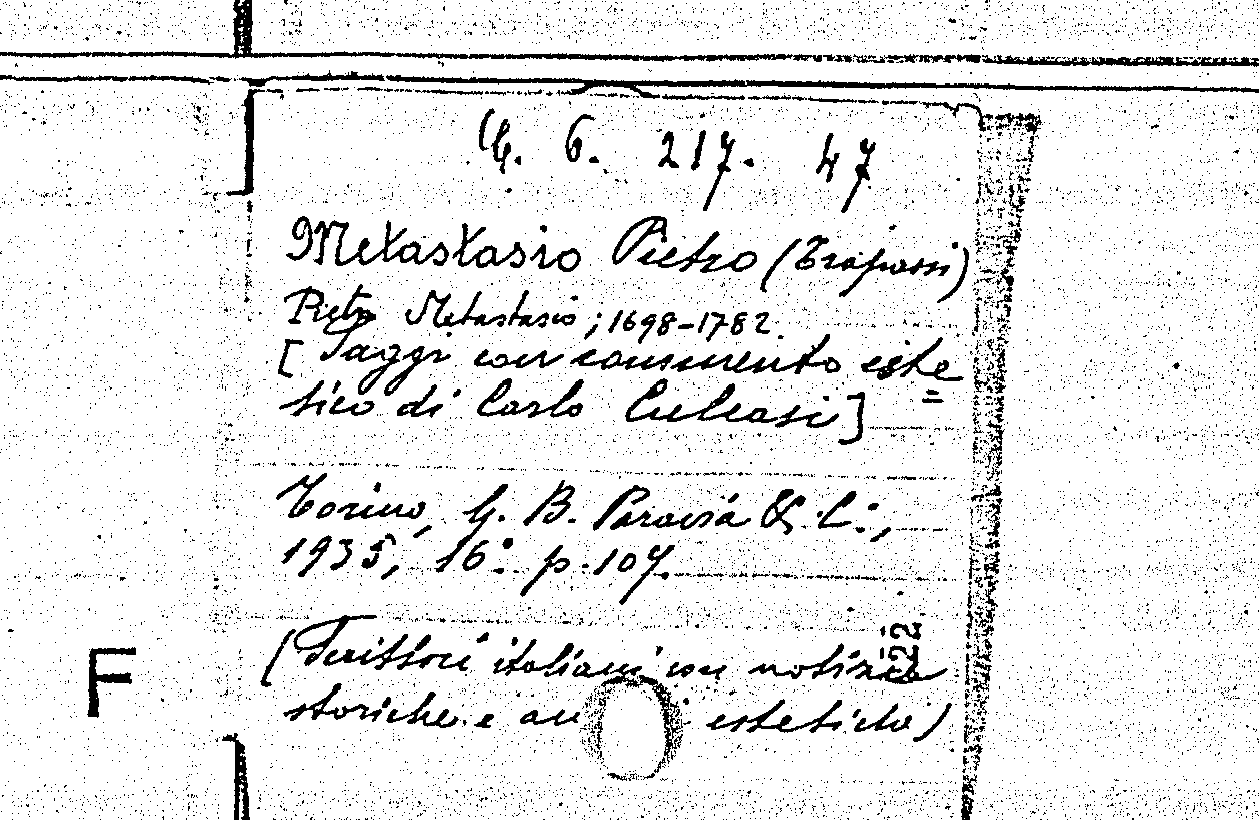 G. 6. 217. 47
Metastasio Pietro (Trapassi)
Pietro Metastasio; 1698-1782.
[Saggi con commento este=
tico di Carlo Culcasi]
Torino, G. B. Paravia & C.,
1935, 16° p. 107.
(Scrittori italiani con notizie
storiche e estetiche)
22
F